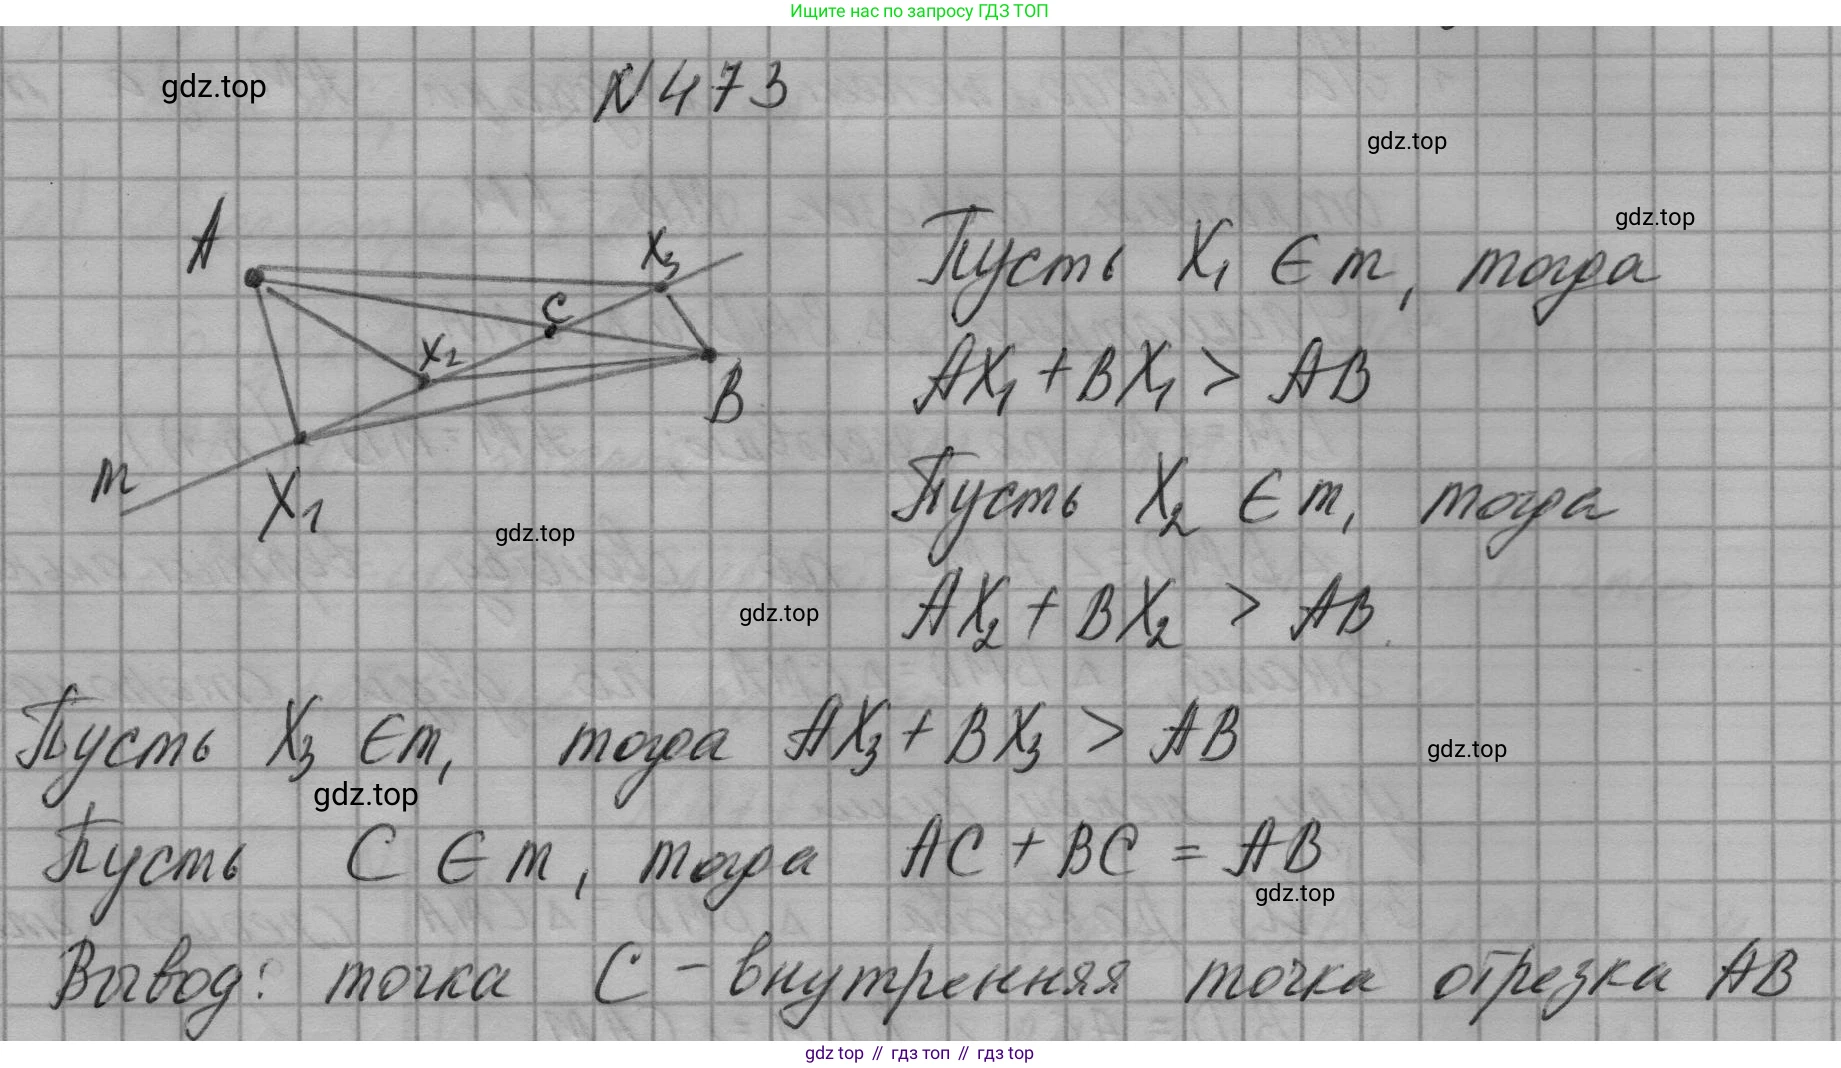 Ищите нас по запросу ГДЗ ТОП
gdz.top
N 473
gdz.top
gdz.top
A
X3
C
X2
B
m
X1
gdz.top
Пусть X1 ∈ m, тогда
AX1 + BX1 > AB
Пусть X2 ∈ m, тогда
gdz.top
AX2 + BX2 > AB
Пусть X3 ∈ m, тогда AX3 + BX3 > AB
gdz.top
gdz.top
Пусть C ∈ m, тогда AC + BC = AB
gdz.top
Вывод: точка C - внутренняя точка отрезка AB
gdz top // гдз топ // гдз top